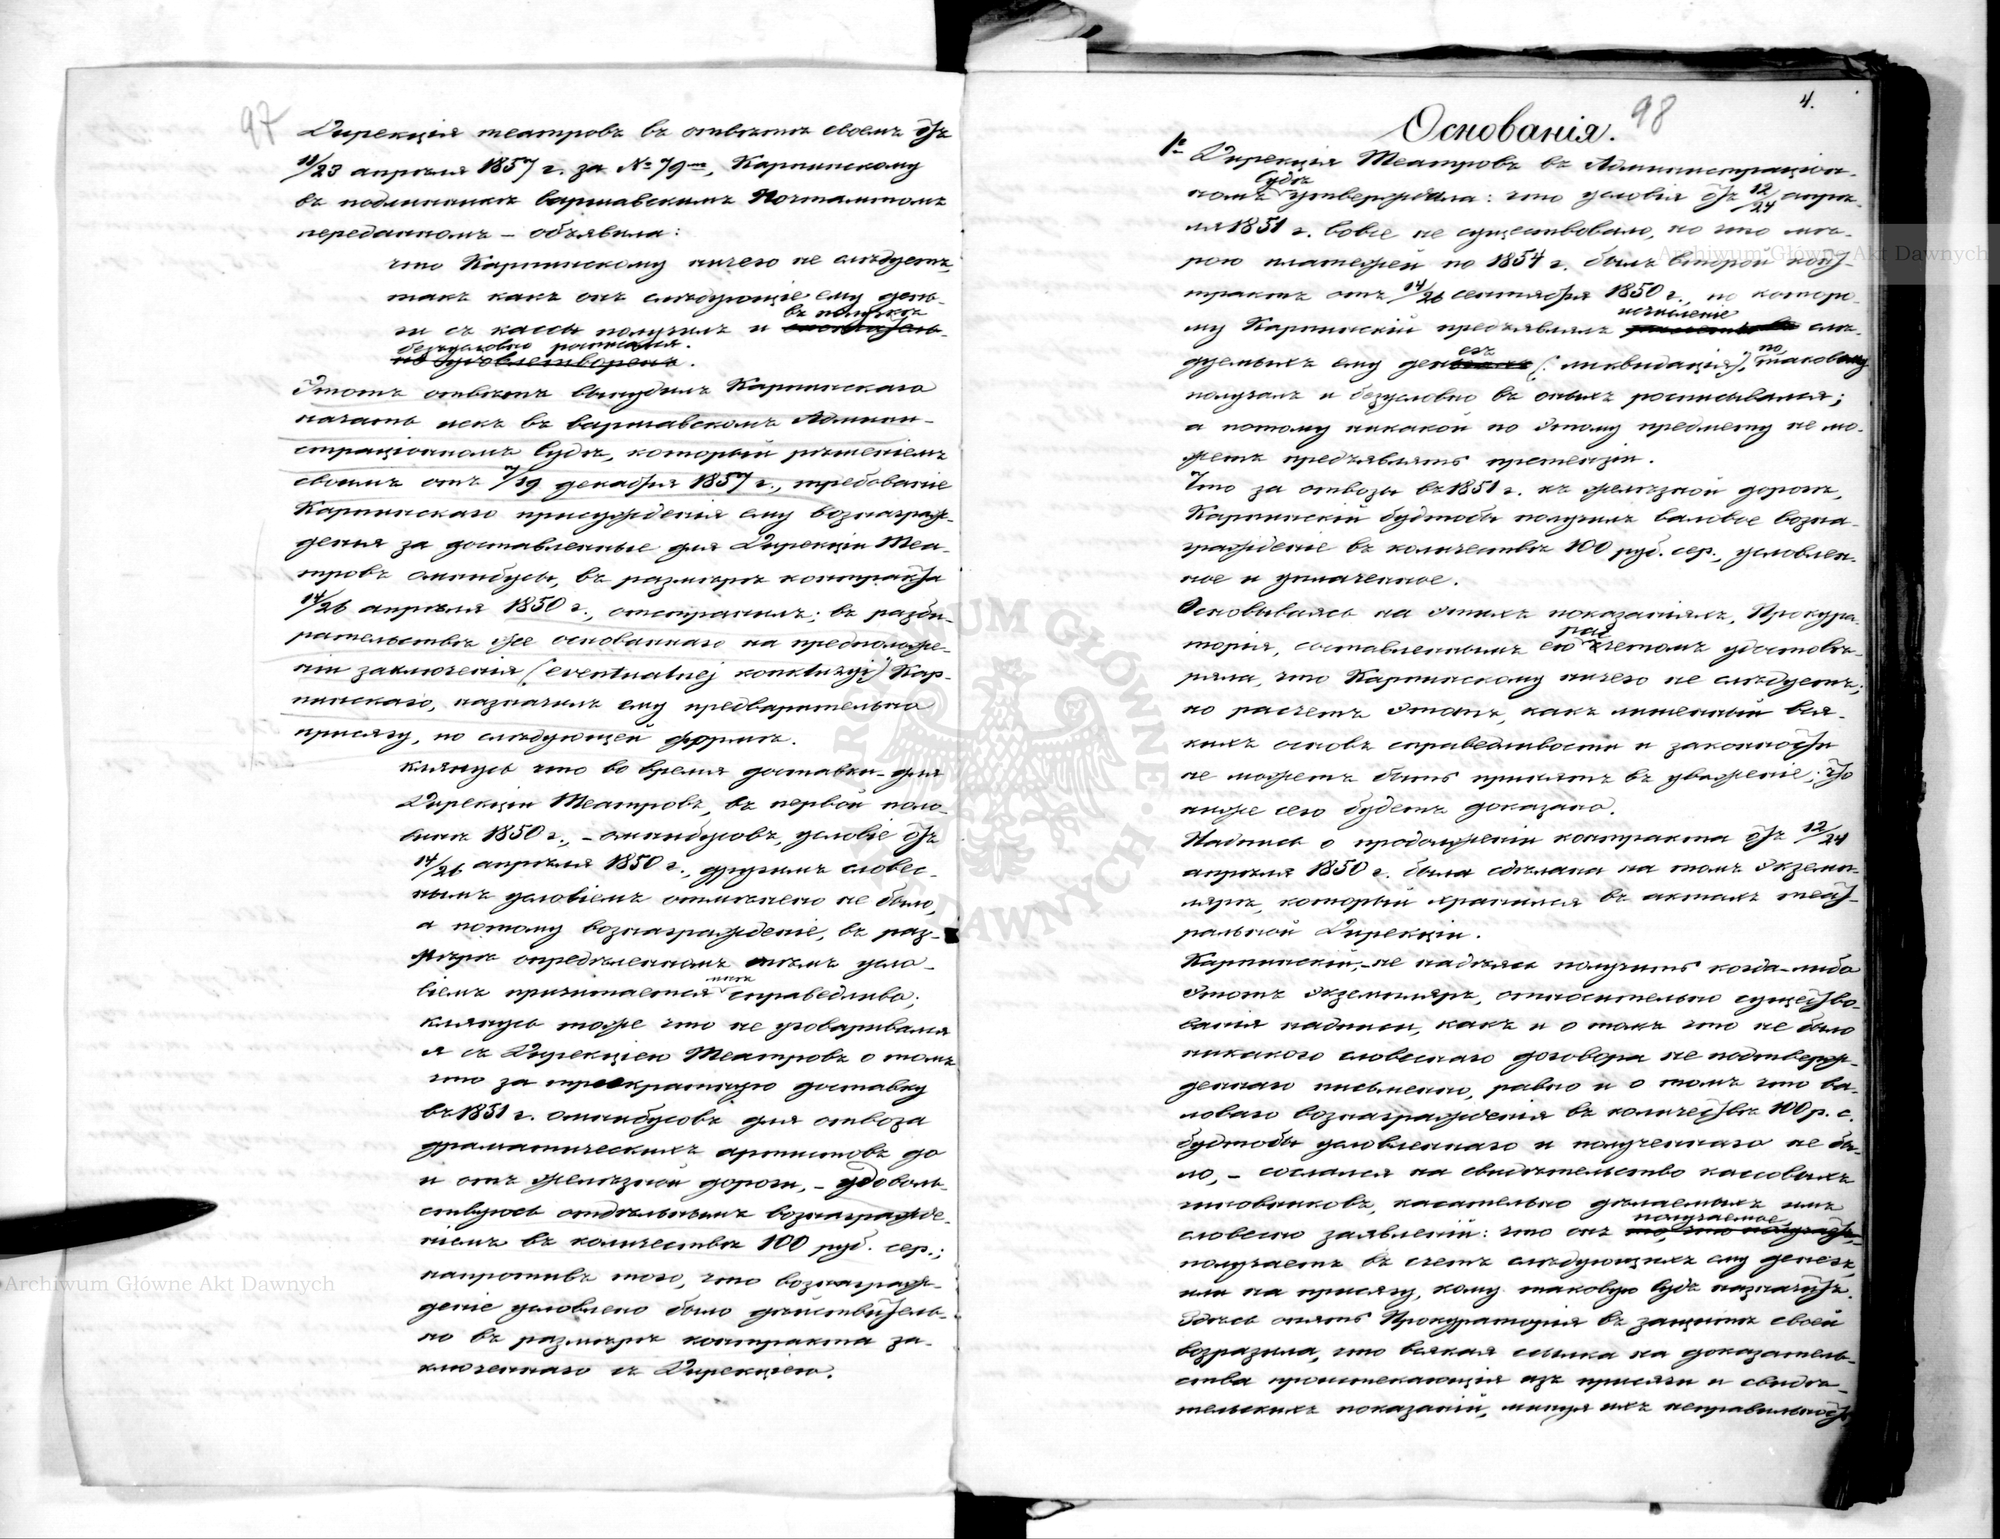 97
Дирекція театровъ въ отвѣтѣ своемъ отъ
11/23 апрѣля 1857 г. за № 79, Карпинскому
въ подлинникѣ Варшавскимъ Почтамтомъ
переданномъ – объявила:
что Карпинскому ничего не слѣдуетъ,
такъ какъ онъ слѣдующіе ему день-
въ полученіи
ги съ кассы получилъ и
безусловно росписался.
удовлетворенъ.
Этотъ отвѣтъ вынудилъ Карпинскаго
начать искъ въ Варшавскомъ Админи-
страціонномъ Судѣ, который рѣшеніемъ
своимъ отъ 7/19 декабря 1857 г., требованіе
Карпинскаго присужденія ему вознаграж-
денія за доставленные для Дирекціи Теа-
тровъ омнибусы, въ размѣрѣ контракта
14/26 апрѣля 1850 г., отстранилъ; въ разби-
рательствѣ же основаннаго на предположе-
ніи заключенія (eventualnej konkluzyi) Кар-
пинскаго, назначилъ ему предварительно
присягу, по слѣдующей формѣ.
Клянусь что во время доставки для
Дирекціи Театровъ, въ первой поло-
винѣ 1850 г., – омнибусовъ, условіе отъ
14/26 апрѣля 1850 г., другимъ словес-
нымъ условіемъ отмѣнено не было,
а потому вознагражденіе, въ раз-
мѣрѣ опредѣленномъ этимъ усло-
віемъ причитается мнѣ справедливо;
клянусь тоже что не уговаривался
я съ Дирекціею Театровъ о томъ
что за троекратную доставку
въ 1851 г. омнибусовъ для отвоза
драматическихъ артистовъ до
и отъ желѣзной дороги, – удоволь-
ствуюсь отдѣльнымъ вознагражде-
ніемъ въ количествѣ 100 руб. сер.;
напротивъ того, что вознаграж-
деніе условлено было дѣйствитель-
но въ размѣрѣ контракта за-
ключеннаго съ Дирекціею.
98
4.
Основанія.
1º Дирекція Театровъ въ Администраціон-
номъ Судѣ утверждала: что условія отъ 12/24 апрѣ-
ля 1851 г. вовсе не существовало, но что мѣ-
рою платежей по 1854 г. былъ второй кон-
трактъ отъ 14/26 сентября 1850 г., по которо-
исчисленіе
му Карпинскій предъявлялъ слѣ-
дуемыхъ ему денегъ (: ликвидація), по таковому
получалъ и безусловно въ оныхъ росписывался;
а потому никакой по этому предмету не мо-
жетъ предъявлять претензіи.
Что за отвозы въ 1851 г. къ желѣзной дорогѣ,
Карпинскій будтобы получилъ валовое возна-
гражденіе въ количествѣ 100 руб. сер., условлен-
ное и уплаченное.
Основываясь на этихъ показаніяхъ, Прокура-
торія, составленнымъ ею расчетомъ удостовѣ-
ряла, что Карпинскому ничего не слѣдуетъ;
но расчетъ этотъ, какъ лишенный вся-
кихъ основъ справедливости и законности
не можетъ быть принятъ въ уваженіе; что
ниже сего будетъ доказано.
Надпись о продолженіи контракта отъ 12/24
апрѣля 1850 г. была сдѣлана на томъ экземп-
лярѣ, который хранился въ актахъ теат-
ральной Дирекціи.
Карпинскій, – не надѣясь получить когда-либо
этотъ экземпляръ, относительно существо-
ванія надписи, какъ и о томъ что не было
никакого словеснаго договора не подтверж-
деннаго письменно, равно и о томъ что ва-
ловаго вознагражденія въ количествѣ 100 р. с.
будтобы условленнаго и полученнаго не бы-
ло, – сослался на свидѣтельство кассовыхъ
чиновниковъ, касательно дѣлаемыхъ имъ
получаемое,
словесно заявленій: что онъ
получаетъ въ счетъ слѣдующихъ ему денегъ,
или на присягу, кому таковую Судъ назначитъ.
Здѣсь опять Прокураторія въ защитѣ своей
возразила, что всякая ссылка на доказатель-
ства проистекающія изъ присяги и свидѣ-
тельскихъ показаній, минуя ихъ неправильность,
Archiwum Główne Akt Dawnych
Archiwum Główne Akt Dawnych
ARCHIWUM GŁÓWNE AKT DAWNYCH